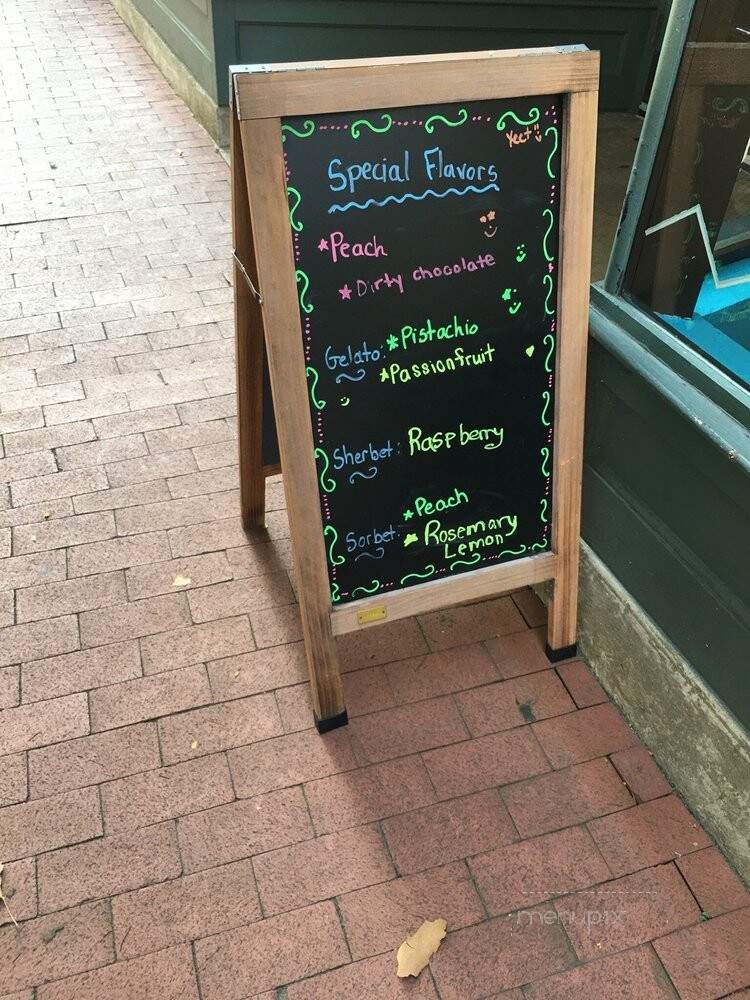 Yeet
Special Flavors
*Peach
*Dirty chocolate
Gelato: *Pistachio
*Passionfruit
Sherbet: Raspberry
*Peach
Sorbet: *Rosemary
Lemon
menupix